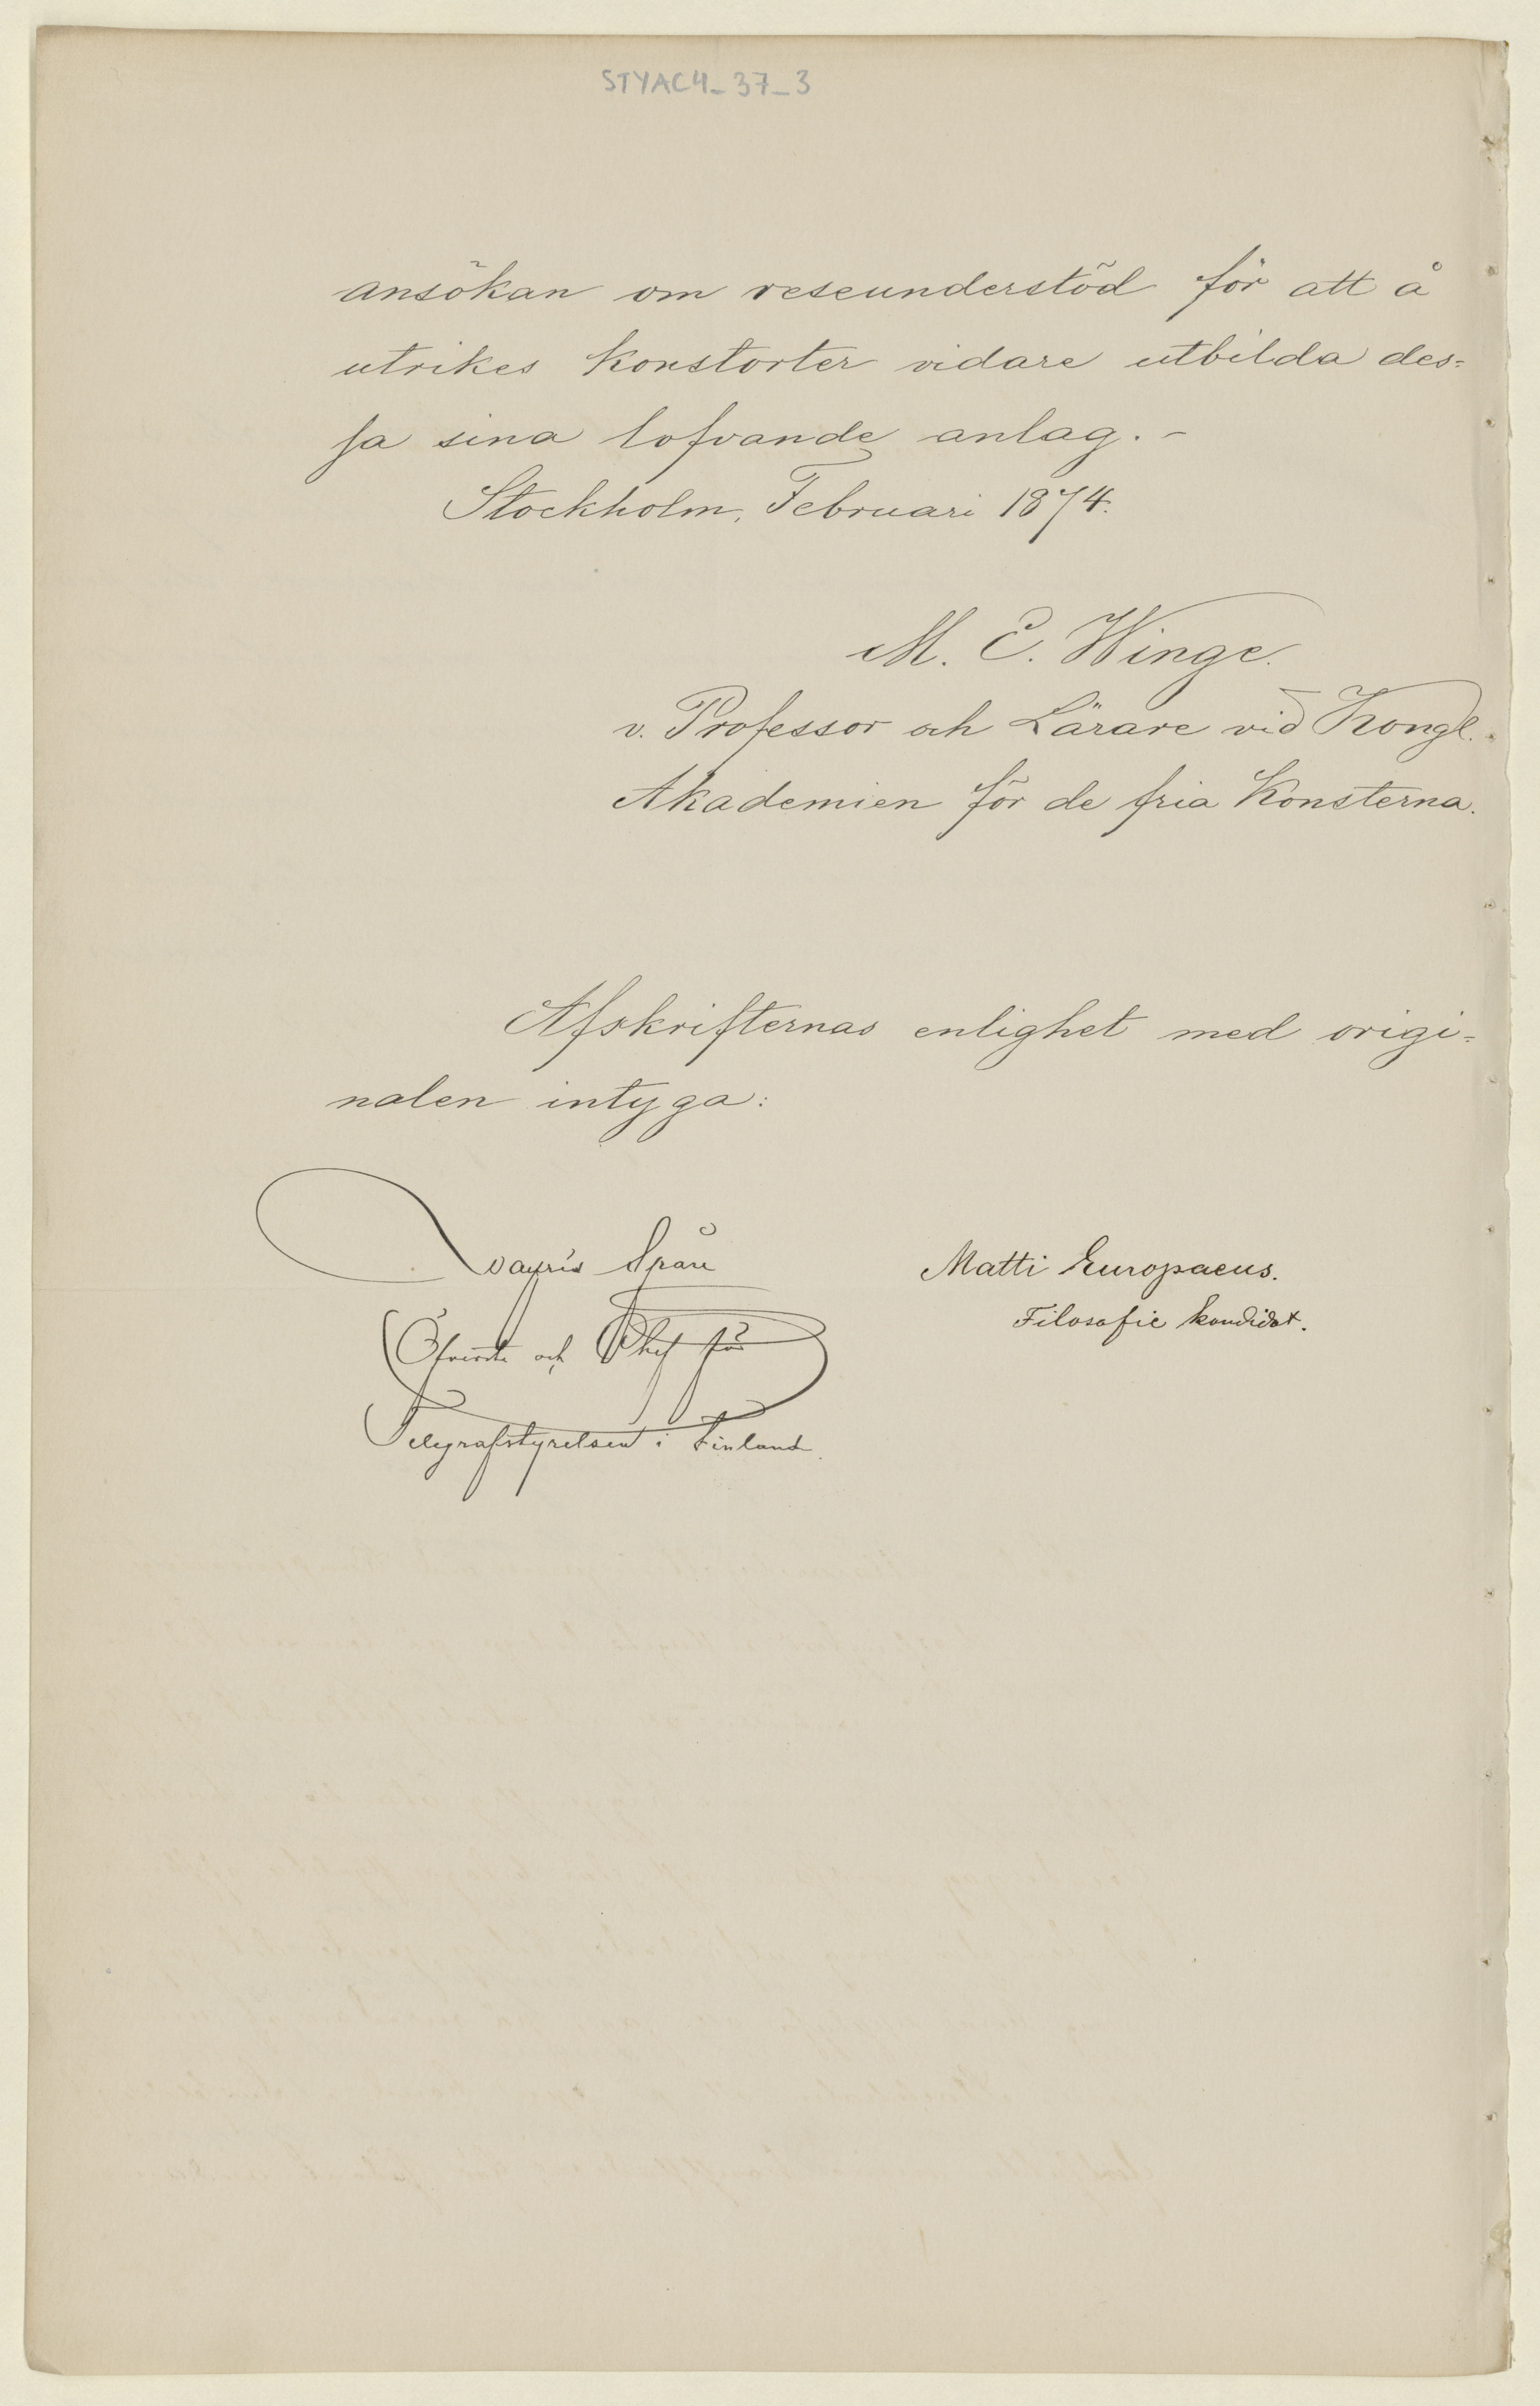 STYAC4_37_3
ansökan om reseunderstöd för att å
utrikes Konstorter vidare utbilda des=
sa sina lofvande anlag. –
Stockholm, Februari 1874.
M. E. Winge.
v. Professor och Lärare vid Kongl.
Akademien för de fria Konsterna.
Afskrifternas enlighet med origi=
nalen intyga:
Spåre
Matti Europaeus.
Filosofie kandidat.
Öfverste och Chef för
Telegrafstyrelsen i Finland.